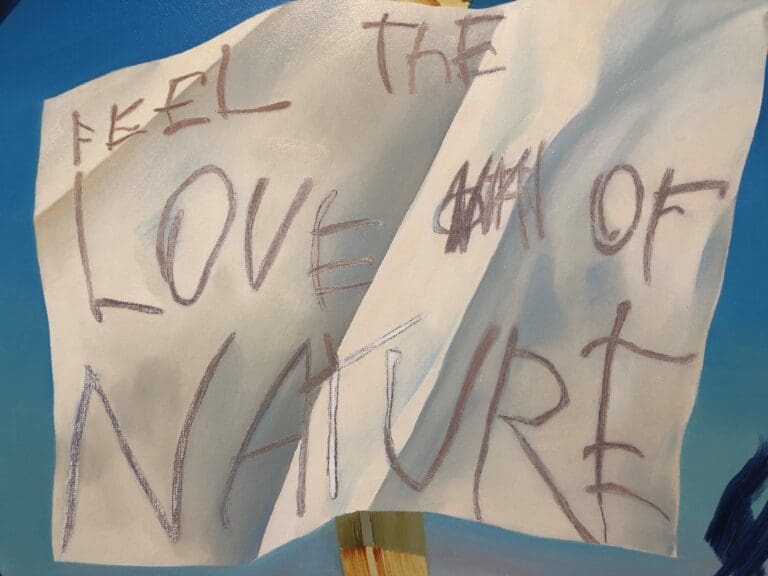 FEEL ThE
LOVE OF
NATURE